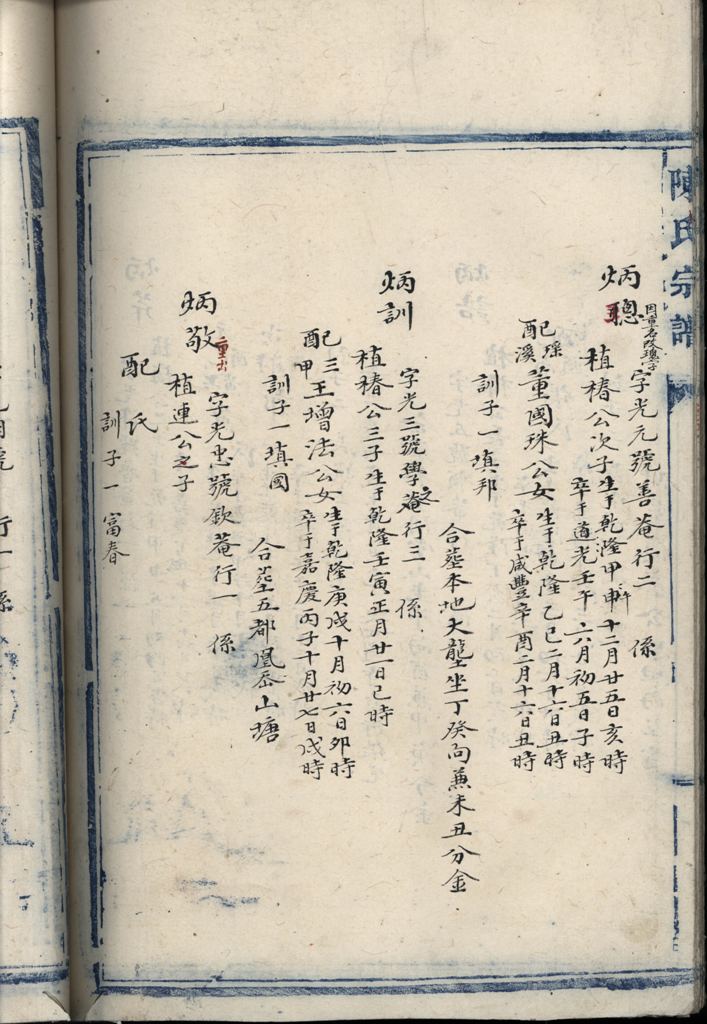 陳氏宗譜
炳聰 因重名改 字光元號善菴行二 係
植椿公次子生于乾隆甲申年十二月廿五日亥時
卒于道光壬午六月初五日子時
配瑶溪董國珠公女生于乾隆乙巳二月十六日丑時
卒于咸豐辛酉二月十六日丑時
訓子一填邦
合塟本地大壟坐丁癸向兼未丑分金
炳訓 字光三號學菴行三 係
植椿公三子生于乾隆壬寅正月廿一日巳時
配三甲王增法公女生于乾隆庚戌十月初六日卯時
卒于嘉慶丙子十月廿七日戌時
訓子一填國
合塟五都凰岙山塘
炳敬 重出 字光忠號欽菴行一 係
植連公之子
配 氏
訓子一富春